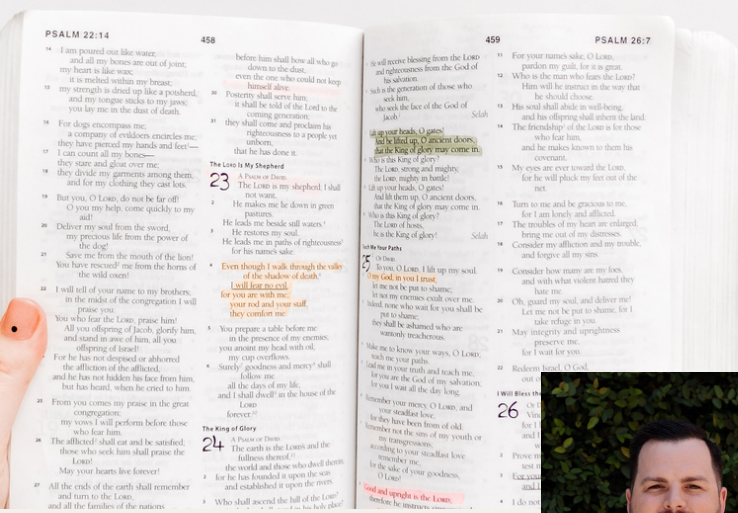 PSALM 22:14
458
14 I am poured out like water,
and all my bones are out of joint;
my heart is like wax;
it is melted within my breast;
15 my strength is dried up like a potsherd,
and my tongue sticks to my jaws;
you lay me in the dust of death.
16 For dogs encompass me;
a company of evildoers encircles me;
they have pierced my hands and feet—
17 I can count all my bones—
they stare and gloat over me;
18 they divide my garments among them,
and for my clothing they cast lots.
19 But you, O LORD, do not be far off!
O you my help, come quickly to my
aid!
20 Deliver my soul from the sword,
my precious life from the power of
the dog!
21 Save me from the mouth of the lion!
You have rescued me from the horns of
the wild oxen!
22 I will tell of your name to my brothers;
in the midst of the congregation I will
praise you:
You who fear the LORD, praise him!
All you offspring of Jacob, glorify him,
and stand in awe of him, all you
offspring of Israel!
For he has not despised or abhorred
the affliction of the afflicted,
and he has not hidden his face from him,
but has heard, when he cried to him.
25 From you comes my praise in the great
congregation;
my vows I will perform before those
who fear him.
26 The afflicted shall eat and be satisfied;
those who seek him shall praise the
LORD!
May your hearts live forever!
27 All the ends of the earth shall remember
and turn to the LORD,
and all the families of the nations
before him shall bow all who go
down to the dust,
even the one who could not keep
himself alive.
30 Posterity shall serve him;
it shall be told of the Lord to the
coming generation;
31 they shall come and proclaim his
righteousness to a people yet
unborn,
that he has done it.
The LORD Is My Shepherd
23 A PSALM OF DAVID.
The LORD is my shepherd; I shall
not want.
2 He makes me lie down in green
pastures.
He leads me beside still waters.
3 He restores my soul.
He leads me in paths of righteousness
for his name's sake.
4 Even though I walk through the valley
of the shadow of death,
I will fear no evil,
for you are with me;
your rod and your staff,
they comfort me.
5 You prepare a table before me
in the presence of my enemies;
you anoint my head with oil;
my cup overflows.
6 Surely goodness and mercy shall
follow me
all the days of my life,
and I shall dwell in the house of the
LORD
forever.
The King of Glory
24 A PSALM OF DAVID.
The earth is the LORD's and the
fullness thereof,
the world and those who dwell therein,
2 for he has founded it upon the seas
and established it upon the rivers.
3 Who shall ascend the hill of the LORD?
459
PSALM 26:7
He will receive blessing from the LORD
and righteousness from the God of
his salvation.
Such is the generation of those who
seek him,
who seek the face of the God of
Jacob.
Selah
Lift up your heads, O gates!
And be lifted up, O ancient doors,
that the King of glory may come in.
Who is this King of glory?
The LORD, strong and mighty,
the LORD, mighty in battle!
Lift up your heads, O gates!
And lift them up, O ancient doors,
that the King of glory may come in.
Who is this King of glory?
The LORD of hosts,
he is the King of glory!
Selah
Me Your Paths
25 OF DAVID.
To you, O LORD, I lift up my soul.
O my God, in you I trust;
let me not be put to shame;
let not my enemies exult over me.
Indeed, none who wait for you shall be
put to shame;
they shall be ashamed who are
wantonly treacherous.
Make me to know your ways, O LORD;
teach me your paths.
Lead me in your truth and teach me,
for you are the God of my salvation;
for you I wait all the day long.
Remember your mercy, O LORD, and
your steadfast love,
for they have been from of old.
Remember not the sins of my youth or
my transgressions;
according to your steadfast love
remember me,
for the sake of your goodness,
O LORD!
Good and upright is the LORD;
therefore he instructs
11 For your name's sake, O LORD,
pardon my guilt, for it is great.
12 Who is the man who fears the LORD?
Him will he instruct in the way that
he should choose.
13 His soul shall abide in well-being,
and his offspring shall inherit the land.
14 The friendship of the LORD is for those
who fear him,
and he makes known to them his
covenant.
15 My eyes are ever toward the LORD,
for he will pluck my feet out of the
net.
16 Turn to me and be gracious to me,
for I am lonely and afflicted.
17 The troubles of my heart are enlarged;
bring me out of my distresses.
18 Consider my affliction and my trouble,
and forgive all my sins.
19 Consider how many are my foes,
and with what violent hatred they
hate me.
20 Oh, guard my soul, and deliver me!
Let me not be put to shame, for I
take refuge in you.
21 May integrity and uprightness
preserve me,
for I wait for you.
22 Redeem Israel, O God,
I Will Bless the
26